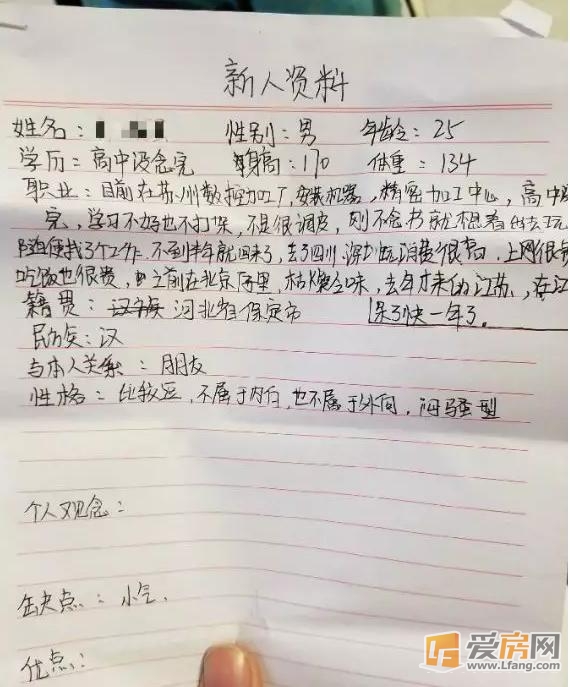 新人资料
姓名： 性别：男 年龄：25
学历：高中没念完 身高：170 体重：134
职业：目前在苏州数控加工厂，安装机器，精密加工中心，高中没
完，学习不好也不打架，不是很调皮，则不念书就想着出去玩
随便找了个工作，不到半年就回来了，去了四川，深圳玩消费很高，上网很贵
吃饭也很贵，之前在北京 枯燥乏味，去年才来的江苏，在江
籍贯：河北省保定市 呆了快一年了。
民族：汉
与本人关系：朋友
性格：比较逗，不属于内向，也不属于外向，闷骚型
个人观念：
缺点：小气.
优点：
爱房网
www.Lfang.com